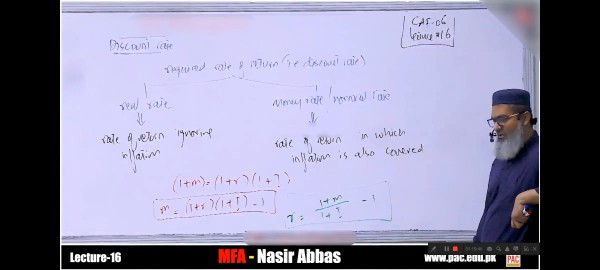 CAF-06
Lecture #16
Discount rate
required rate of return (i.e discount rate)
real rate
Money rate / nominal rate
rate of return ignoring
inflation
rate of return in which
inflation is also covered
(1+m) = (1+r)(1+?)
m = (1+r)(1+?) - 1
r = 1+m / 1+? - 1
Lecture-16
MFA - Nasir Abbas
www.pac.edu.pk
PAC